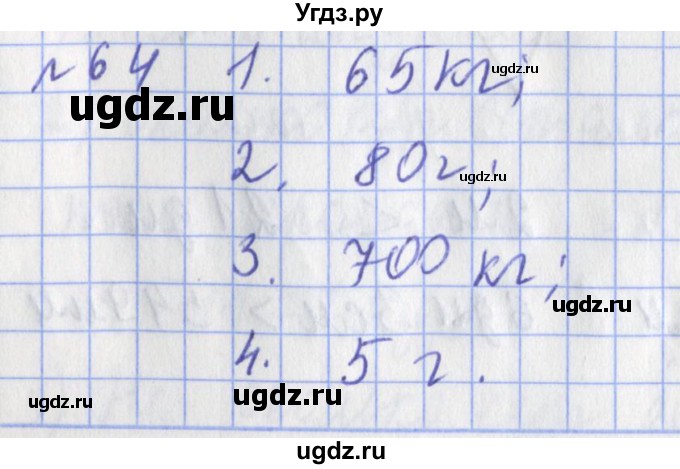 Угдз.ру
№64 1. 65 кг;
2. 80 г;
3. 700 кг;
4. 5 г.
ugdz.ru
ugdz.ru
ugdz.ru
ugdz.ru
ugdz.ru
ugdz.ru
ugdz.ru